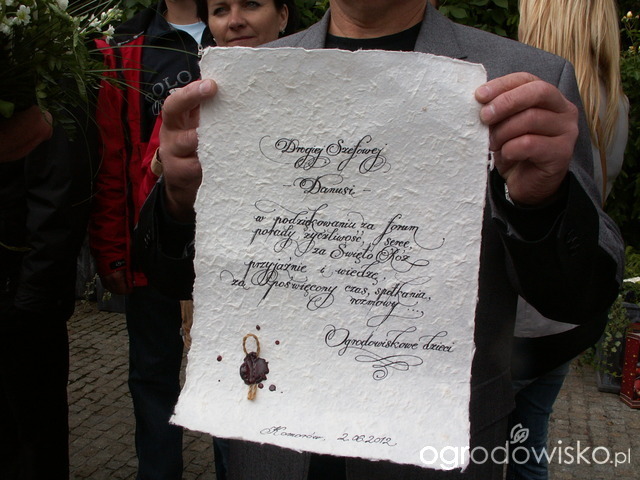 Drogiej Szefowej
- Danusi -
w podziękowaniu za forum
porady, życzliwość, serce,
za Święto Róż
przyjaźnie i wiedzę,
za poświęcony czas, spotkania,
rozmowy ...
Ogrodowiskowe dzieci
2.06.2012
ogrodowisko.pl